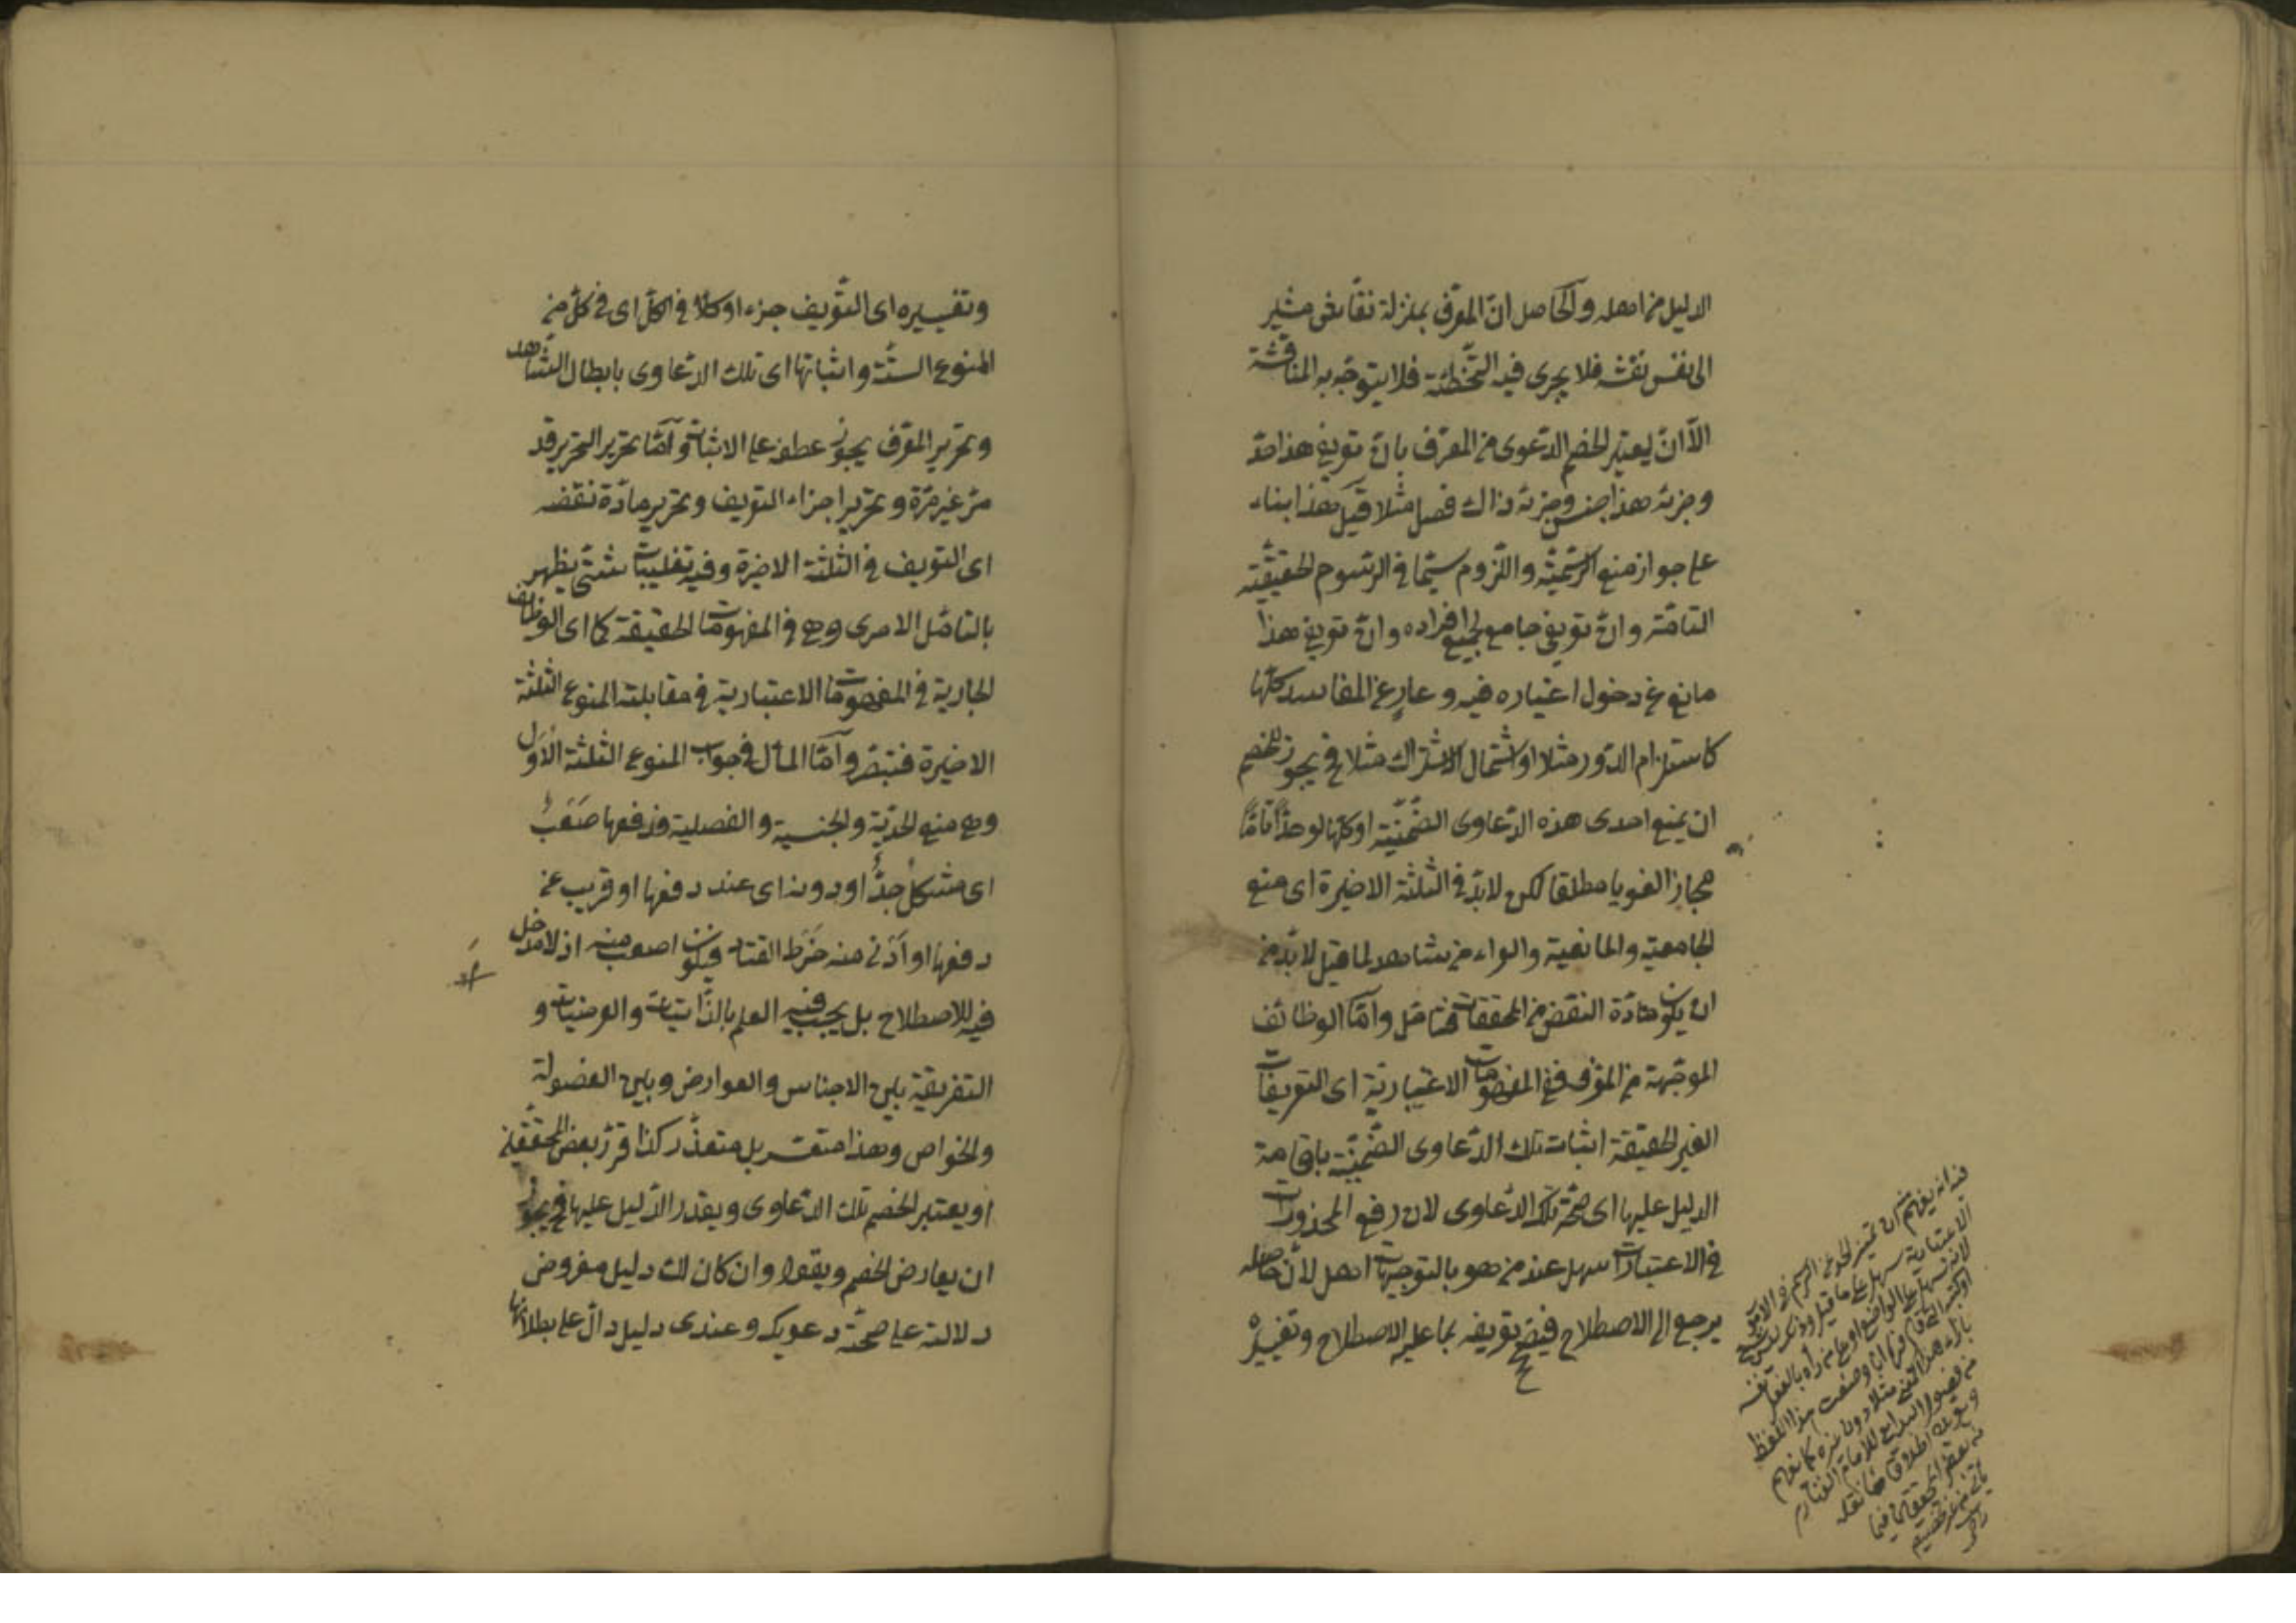 الدليل من اهله والحاصل انّ المعرّف بمنزلة نقّاش مشير
الى نفس نقشه فلا يجرى فيه التّخطئة فلا يتوجّه به المناقشة
الاّ ان يعتبر الخصم الدّعوى من المعرّف بانّ تعريفى هذا حدّ
وجزئه هذا جنس وجزئه ذاك فصل مثلا قيل هذا بناء
على جواز منع الرّسميّة واللّزوم سيّما فى الرّسوم الحقيقيّة
التامّة وانّ تعريفى جامع لجميع افراده وانّ تعريفى هذا
مانع عن دخول اغياره فيه وعار عن المفاسد كلّها
كاستلزام الدّور مثلا او اشتمال الاشتراك مثلا فح يجوز للخصم
ان يمنع احدى هذه الدّعاوى الضّمنيّة او كلّها لو حدّا تامّا
مجازا لغويا مطلقا لكن لابدّ فى الثلثة الاخيرة اى منع
الجامعية والمانعية والعراء من شاهد لما قيل لابدّ من
ان يكون مادّة النقض من المحققات فتامّل وامّا الوظائف
الموجّهة من المعرّف ففى المفهومات الاعتباريّة اى التعريفات
الغير الحقيقة اثبات تلك الدّعاوى الضّمنيّة باقامة
الدليل عليها اى صحّة تلك الدّعاوى لان رفع المحذورات
فى الاعتبارات اسهل عند من هو بالتوجيهات اهل لأن حاصله
يرجع الى الاصطلاح فيصحّ تعريفه بما عليه الاصطلاح وتفسيره
وتفسيره اى التعّريف جزء او كلا فى الكلّ اى فى كلّ من
المنوع الستّة واثباتها اى تلك الدّعاوى بابطال الشّاهد
وتحرير المعرّف يجوز عطفه على الاثبات وامّا تحرير التحرير قد
مرّ غير مرّة وتحرير اجزاء التعريف وتحرير مادّة نقضه
اى التعريف فى الثلثة الاخيرة وفيه تغليبات شتّى يظهر
بالتامّل الاحرى وهى فى المفهومات الحقيقة كما اى الوظائف
الجارية فى المفهومات الاعتبارية فى مقابلة المنوع الثلثة
الاخيرة فتبصّر وامّا المأل فى جواب المنوع الثلثة الاوَل
وهى منع الحدّيّة والجنسية والفصلية فدفعها صَعَبٌ
اى مشكل جدّاً او دونه اى عند دفعها او قريب عن
دفعها او اَدْنى منه خَرَط القتاد فيكون اصعب منه اذ لامدخل
فيه للاصطلاح بل يجب فيه العلم بالذّاتيات والعرضيات و
التفريقة بين الاجناس والعوارض وبين الفصولة
والخواص وهذا متعسّر بل متعذّر كذا قرّر بعض المحقّقين
او يعتبر الخصم تلك الدّعاوى ويقدر الدّليل عليها فح يجوز
ان يعارض الخصم ويقول وان كان لك دليل مفروض
دلالته على صحّة دعويك وعندى دليل دالّ على بطلانها